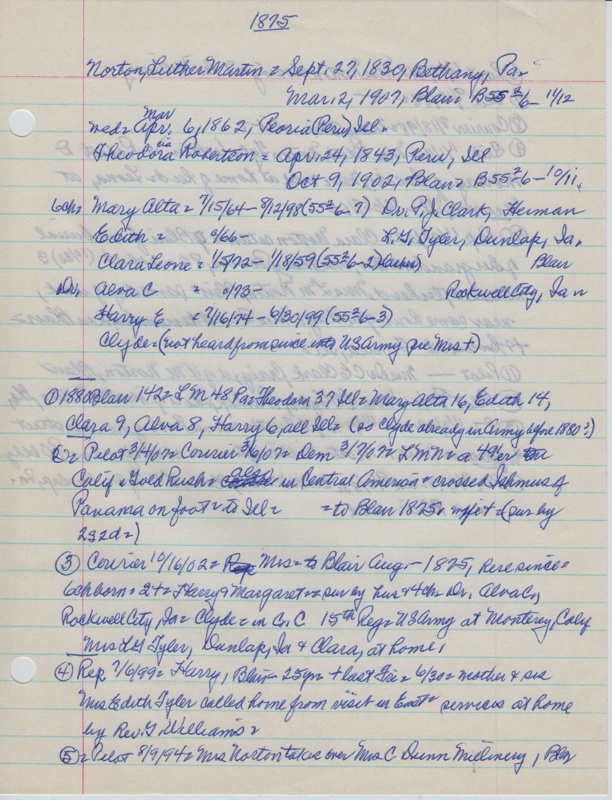 1875
Norton, Luther Martin = Sept. 27, 1830, Bethany, Pa.
Mar. 2, 1907, Blair = B55 2/6 - 11/12
wed = Apr. Mar 6, 1862, Peoria (Peru) Ill.
Theodora Robertson = Apr. 24, 1843, Peru, Ill
Oct 9, 1902, Blair = B55 2/6 - 10/11
6 chs Mary Alta = 7/15/64 - 8/12/98 (55 2/6 - 7) Dr. P.J. Clark, Herman
Edith = 0/66 - L.G. Tyler, Dunlap, Ia
Clara Leone = 1/5/72 - 1/18/59 (55 2/6 - 2) Blair
Dr. Alva C = 0/73 - Rockwell City, Ia
Harry E = 7/16/74 - 6/30/99 (55 2/6 - 3)
Clyde = (not heard from since into US Army pre Mrs +)
① 1880 Blair 142 = L M 48 Pa = Theodora 37 Ill = Mary Alta 16, Edith 14,
Clara 9, Alva 8, Harry 6, all Ill = (so Clyde already in Army before 1880?)
② = Pilot 3/4/07 = Courier 3/6/07 = Dem 3/7/07 = L M N = a 49er
Calif. Gold Rush = also in Central America & crossed Isthmus of
Panama on foot = to Ill = = to Blair 1875 = (sur by
2s 2d =)
③ Courier 10/16/02 = Mrs = to Blair Aug - 1875, here since =
6 ch born = 2 + = Harry & Margaret = sur by hus & 4 ch = Dr. Alva C,
Rockwell City, Ia = Clyde = in Co. C 15th Reg = US Army at Monterey, Calif
Mrs L G Tyler, Dunlap, Ia & Clara, at home,
④ Rep 7/6/99 = Harry, Blair = 25 yrs + last Fri = 6/30 = mother & sis
Mrs Edith Tyler called home from visit in East = services at home
by Rev. G. Williams =
⑤ = Pilot 8/9/94 = Mrs Norton takes over Mrs C Dunn Millinery, Blair